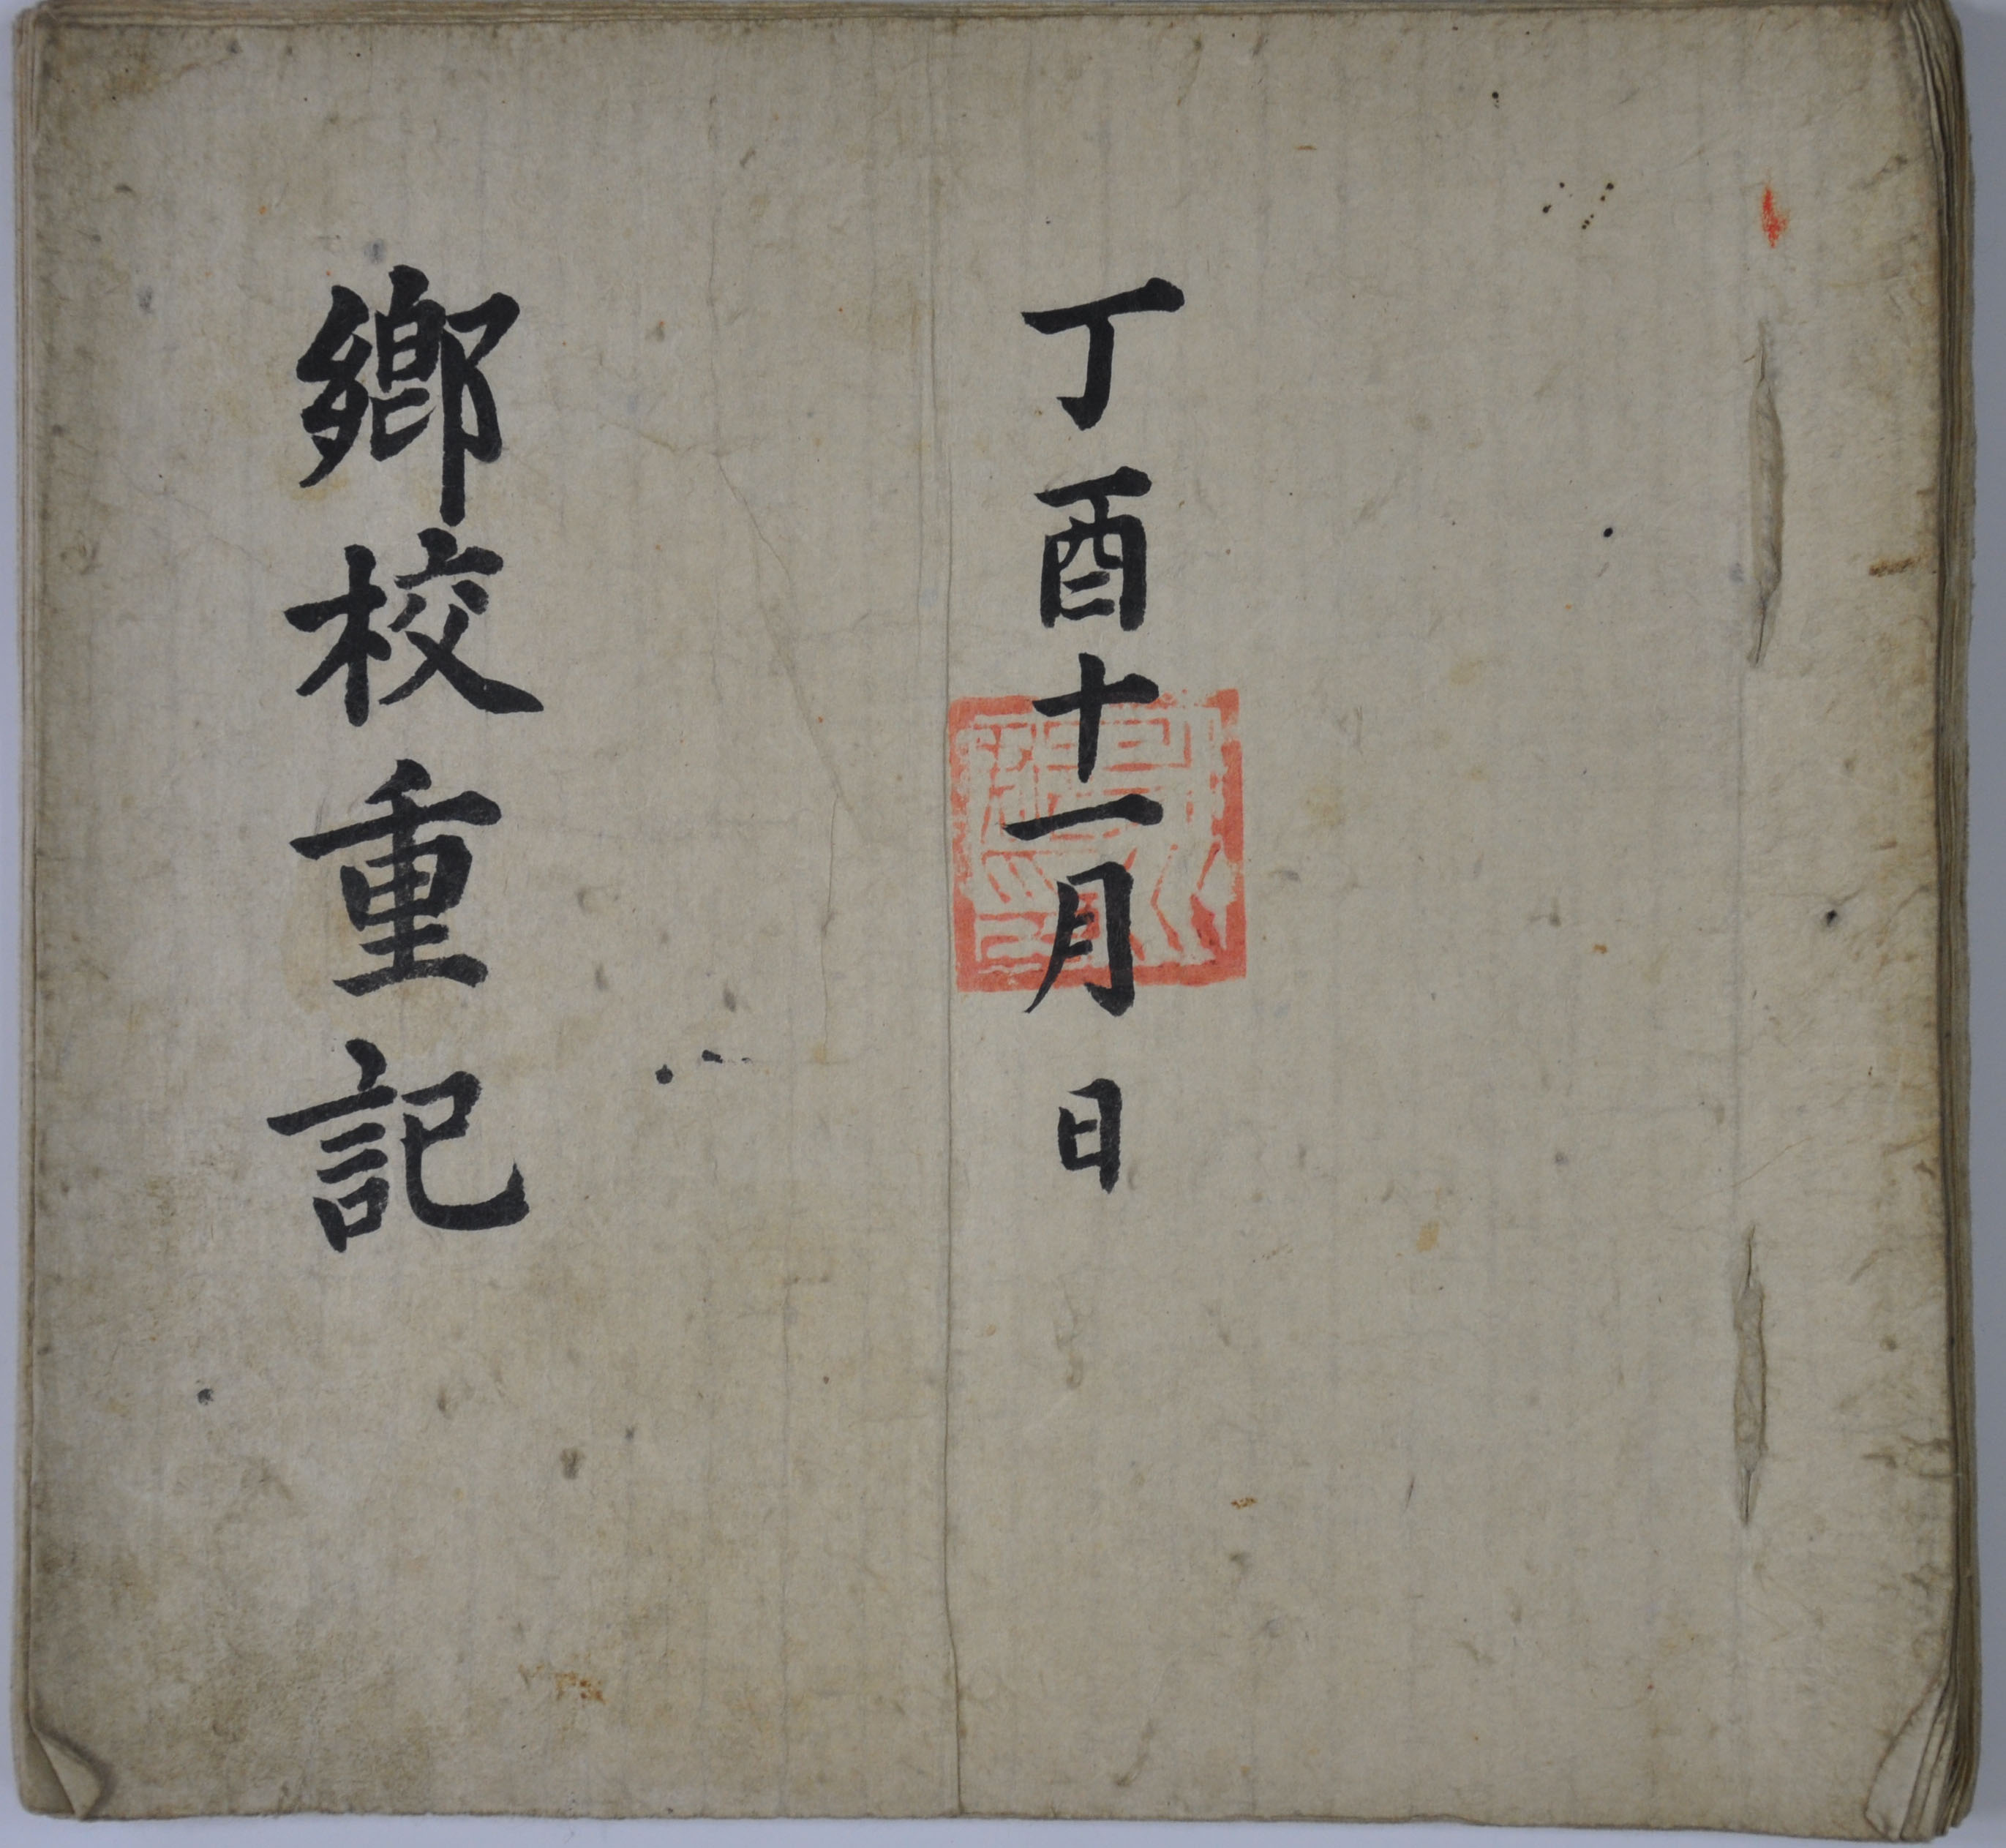 丁酉十一月 日
鄕校重記